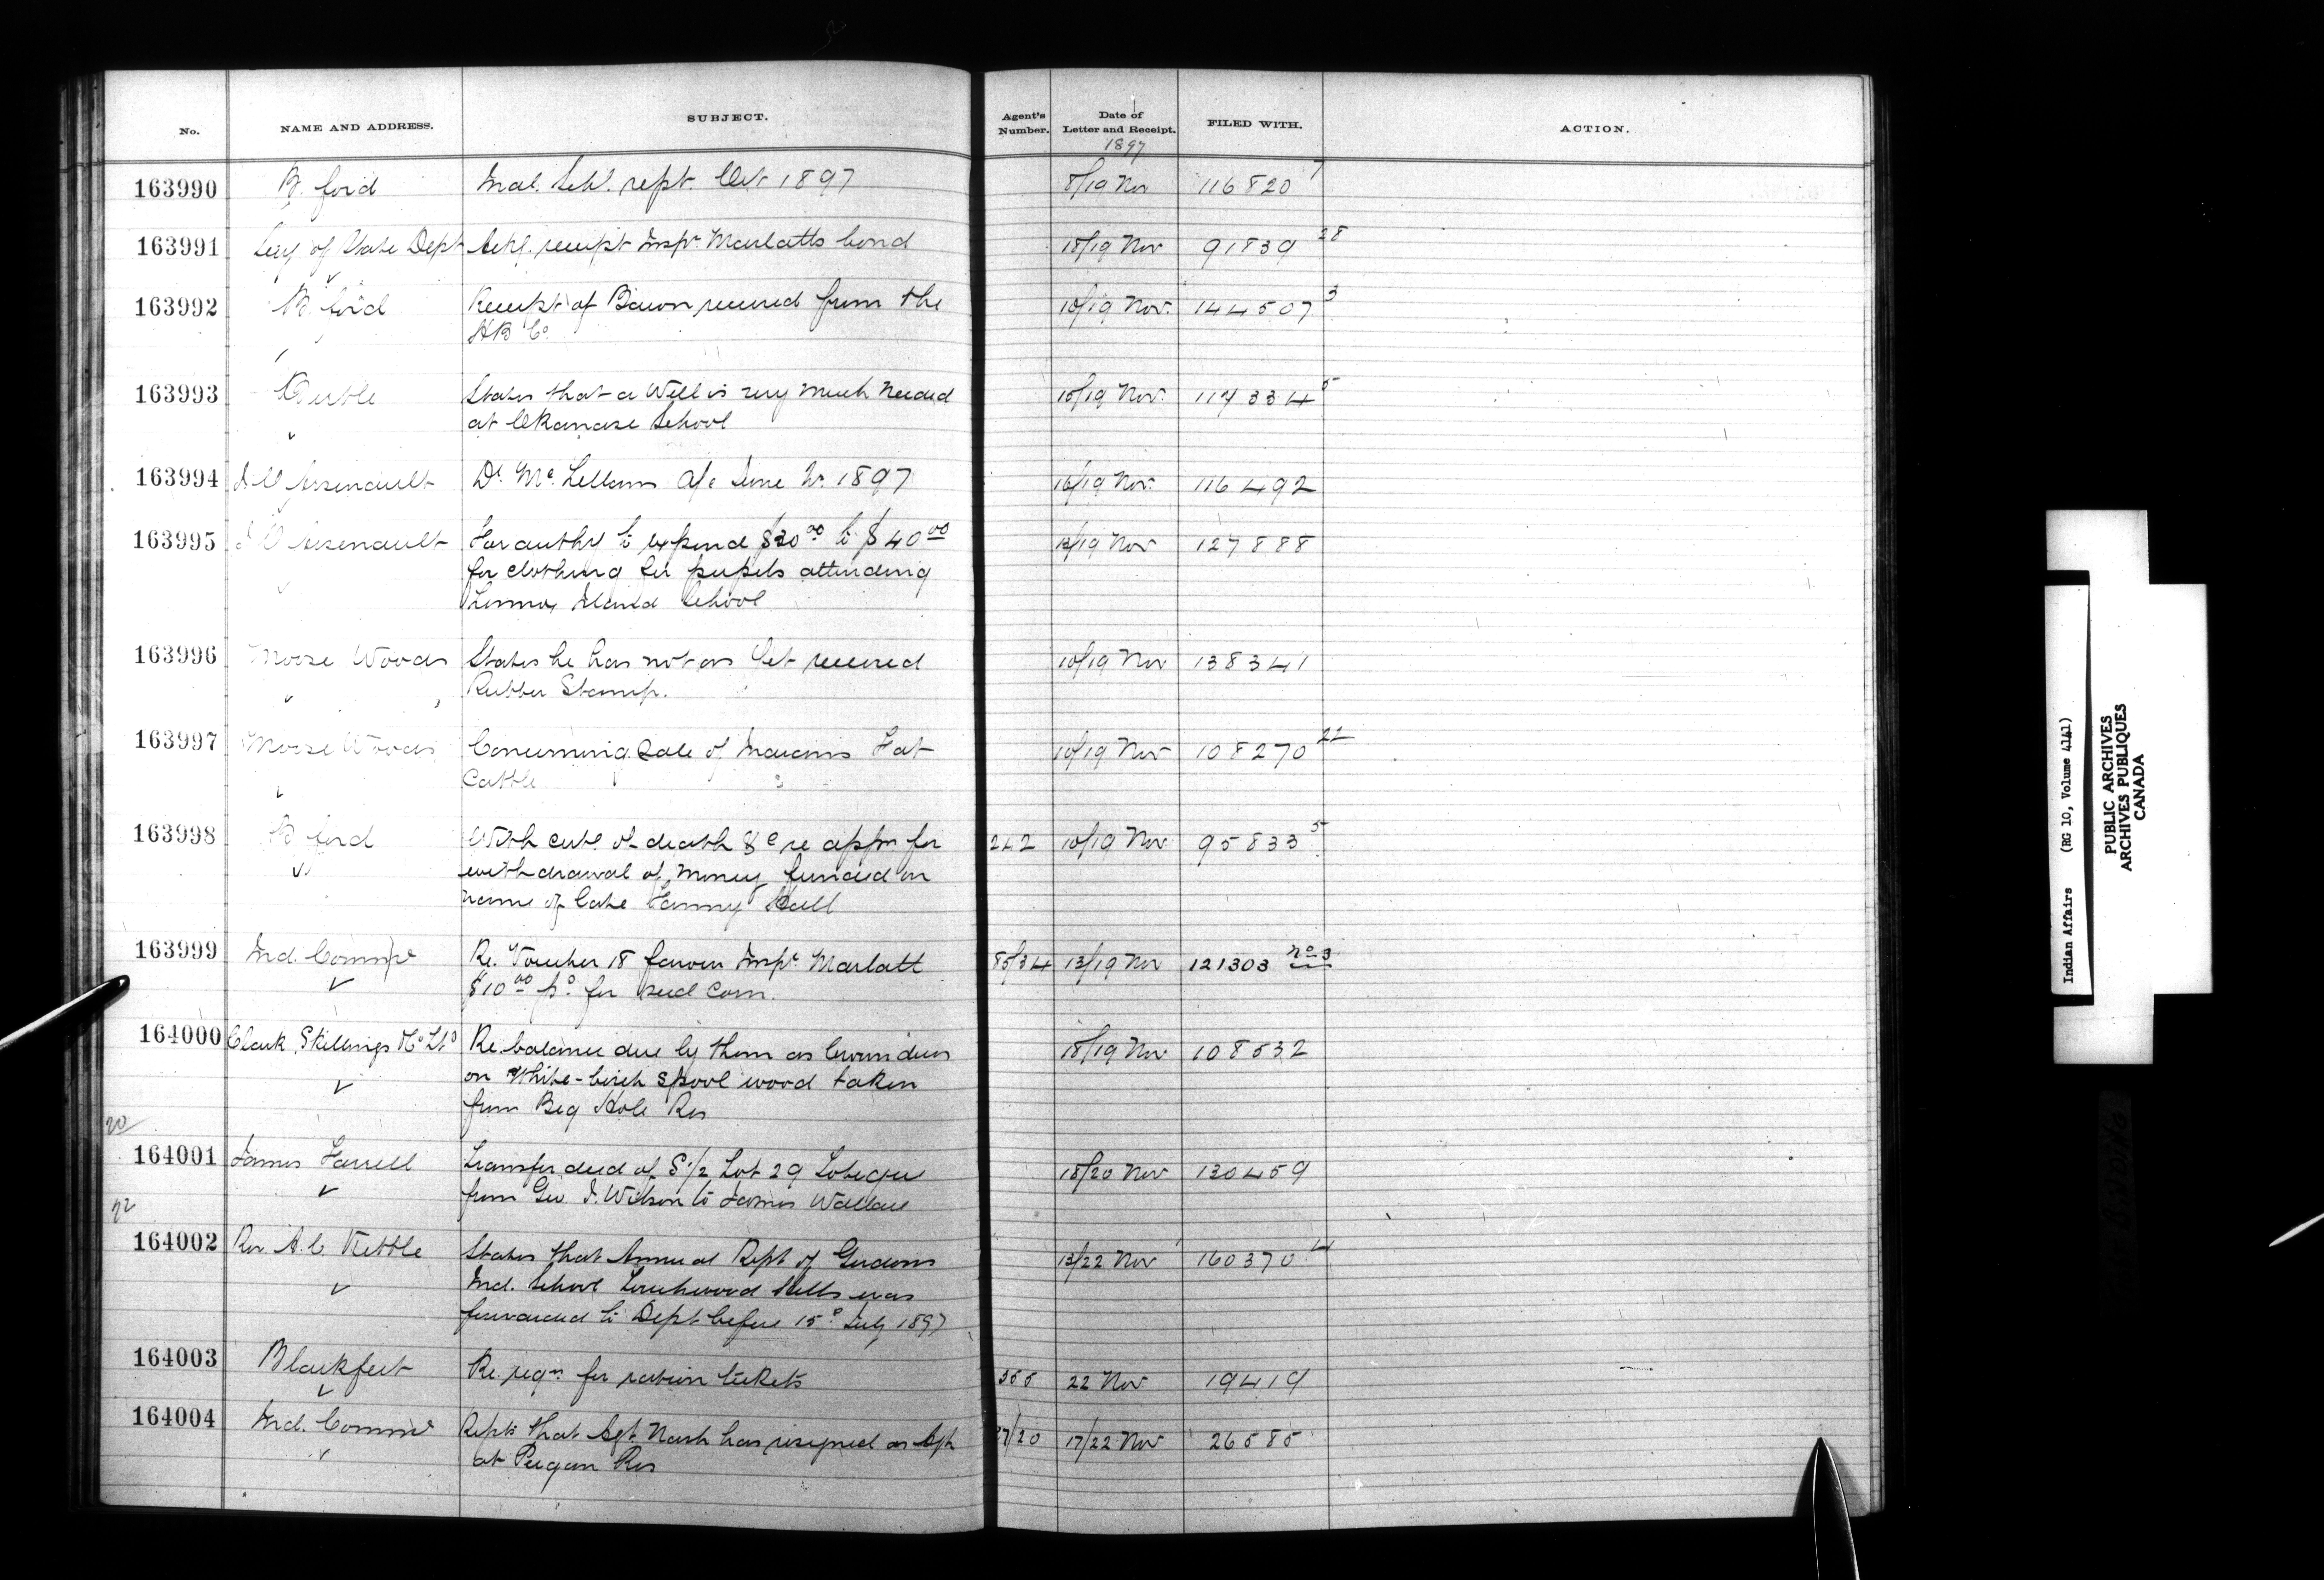 No. NAME AND ADDRESS. SUBJECT. Agent's Number. Date of Letter and Receipt. FILED WITH. ACTION.
1897
163990 B. ford Indl. Schl. rept. Oct 1897 8/19 Nov 116820 7
163991 Secy of State Dept Ackg. receipt Inspr. Marlatts bond 18/19 Nov 91839 28
163992 B. ford Receipt of Bacon received from the 10/19 Nov. 144507 3
H B Co.
163993 Birtle States that a Well is very much needed 15/19 Nov. 117334 5
at Okanase School
163994 J O Arsenault Dr. McLellans a/c June Qr. 1897 16/19 Nov. 116492
163995 J O Arsenault For authy to expend $30.00 to $40.00 12/19 Nov 127888
for clothing for pupils attending
Lennox Island School
163996 Moose Woods States he has not as yet received 10/19 Nov 138341
Rubber Stamp.
163997 Moose Woods Concerning Sale of Indians Fat 10/19 Nov 108270 22
Cattle
163998 B ford With cert. of death &c re appn for 242 10/19 Nov 95833 5
withdrawal of money funded in
name of late Fanny Bull
163999 Ind. Commr Re. Voucher 18 favour Inspr. Marlatt 85/34 13/19 Nov 121303 No 3
$10.00 pd. for seed corn.
164000 Clark, Skillings & Co Ltd Re. balance due by them as Crown dues 18/19 Nov 108532
on White-birch spool wood taken
from Big Hole Res
20
164001 James Farrell Transfer deed of S 1/2 Lot 29 Tobique 18/20 Nov 130459
from Geo. J. Wilson to James Wallace
22
164002 Rev. A. C. Kettle States that Annual Rept of Gordons 13/22 Nov 160370 4
Ind. School Touchwood Hills was
forwarded to Dept before 15th July 1897
164003 Blackfeet Re. reqn. for ration tickets 355 22 Nov 19419
164004 Ind. Commr Repts that Agt. Nash has resigned as Agt 27/20 17/22 Nov 26585
at Peigan Res
Indian Affairs (RG 10, Volume 4141)
PUBLIC ARCHIVES
ARCHIVES PUBLIQUES
CANADA